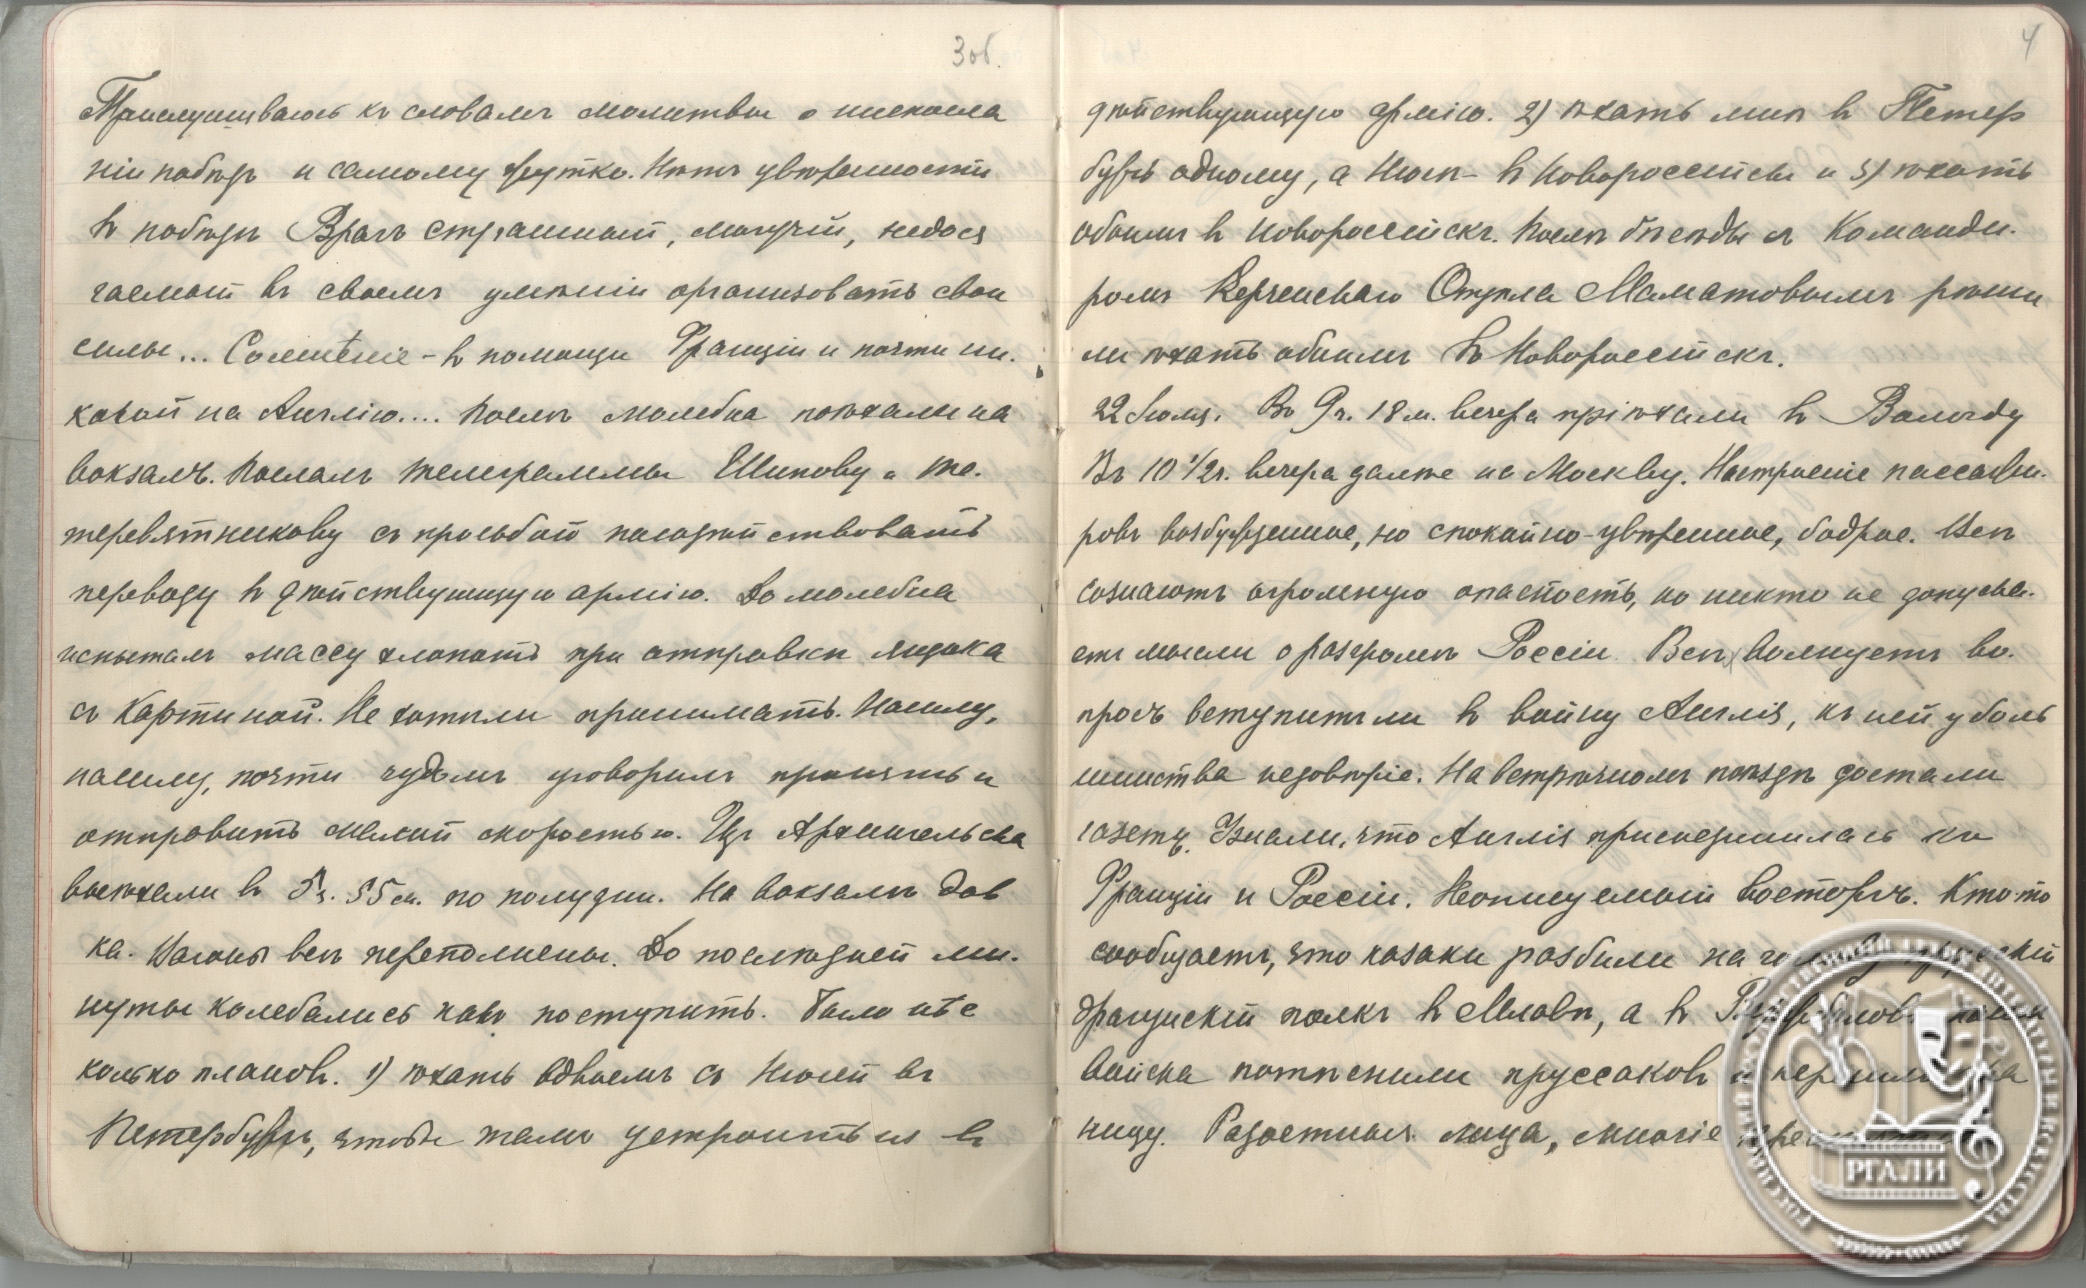 3 об.
Прислушиваюсь къ словамъ молитвы о ниспосла
ніи побѣдъ и самому жутко. Нѣтъ увѣренности
въ побѣдѣ Врагъ страшный, могучій, недося
гаемый въ своемъ умѣніи организовать свои
силы... Сомнѣніе - въ помощи Франціи и почти ни-
какой на Англію.... Послѣ молебна поѣхали на
вокзалъ. Послалъ телеграммы Шипову и Те-
теревятникову съ просьбой посодѣйствовать
переводу въ дѣйствующую армію. До молебна
испыталъ массу хлопотъ при отправкѣ ящика
съ картиной. Не хотѣли принимать. Насилу,
насилу, почти чудомъ уговорилъ принять и
отправить малой скоростью. Изъ Архангельска
выѣхали въ 5 ч. 55 м. по полудни. На вокзалѣ дав
ка. Вагоны всѣ переполнены. До послѣдней ми-
нуты колебались какъ поступить. Было нѣс
колько плановъ. 1) ѣхать вдвоемъ съ Нюсей въ
Петербургъ, чтобы тамъ устроиться въ
4
дѣйствующую армію. 2) ѣхать мнѣ въ Петер
бургъ одному, а Нюсѣ - въ Новороссійскъ и 3) ѣхать
обоимъ въ Новороссійскъ. Послѣ бесѣды съ Команди-
ромъ Керченскаго Отдѣла Маматовымъ рѣши
ли ѣхать обоимъ въ Новороссійскъ.
22 Іюля. Въ 9 ч. 18 м. вечера пріѣхали въ Вологду
Въ 10 1/2 ч. вечера далѣе на Москву. Настроеніе пассажи-
ровъ возбужденное, но спокойно-увѣренное, бодрое. Всѣ
сознаютъ огромную опасность, но никто не допуска-
етъ мысли о разгромѣ Россіи. Всѣхъ волнуетъ во-
просъ вступитъ ли въ войну Англія, къ ней у боль
шинства недовѣріе. На встрѣчномъ поѣздѣ достали
газету. Узнали, что Англія присоединилась къ
Франціи и Россіи. Неописуемый восторгъ. Кто-то
сообщаетъ, что казаки разбили на голову прусскій
драгунскій полкъ въ Млавѣ, а въ наши
войска потѣснили пруссаковъ и перешли гра
ницу. Радостныя лица, многіе
РГАЛИ
РОССИЙСКИЙ ГОСУДАРСТВЕННЫЙ АРХИВ ЛИТЕРАТУРЫ И ИСКУССТВА